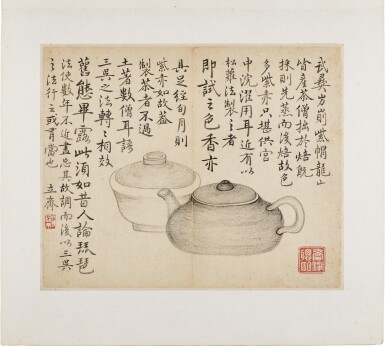 武彝岕崱紫帽龍山
皆產茶僧拙於焙既
採則先蒸而後焙故色
多紫赤只堪供宮
中浣濯用耳近有以
松蘿法製之者
即試之色香亦
具足經旬月則
紫赤如故蓋
製茶者不過
土著數僧耳語
三吳之法轉轉相效
舊態畢露此須如昔人論琵琶
法使數年不近盡忘其故調而後以三吳
之法行之或有當也